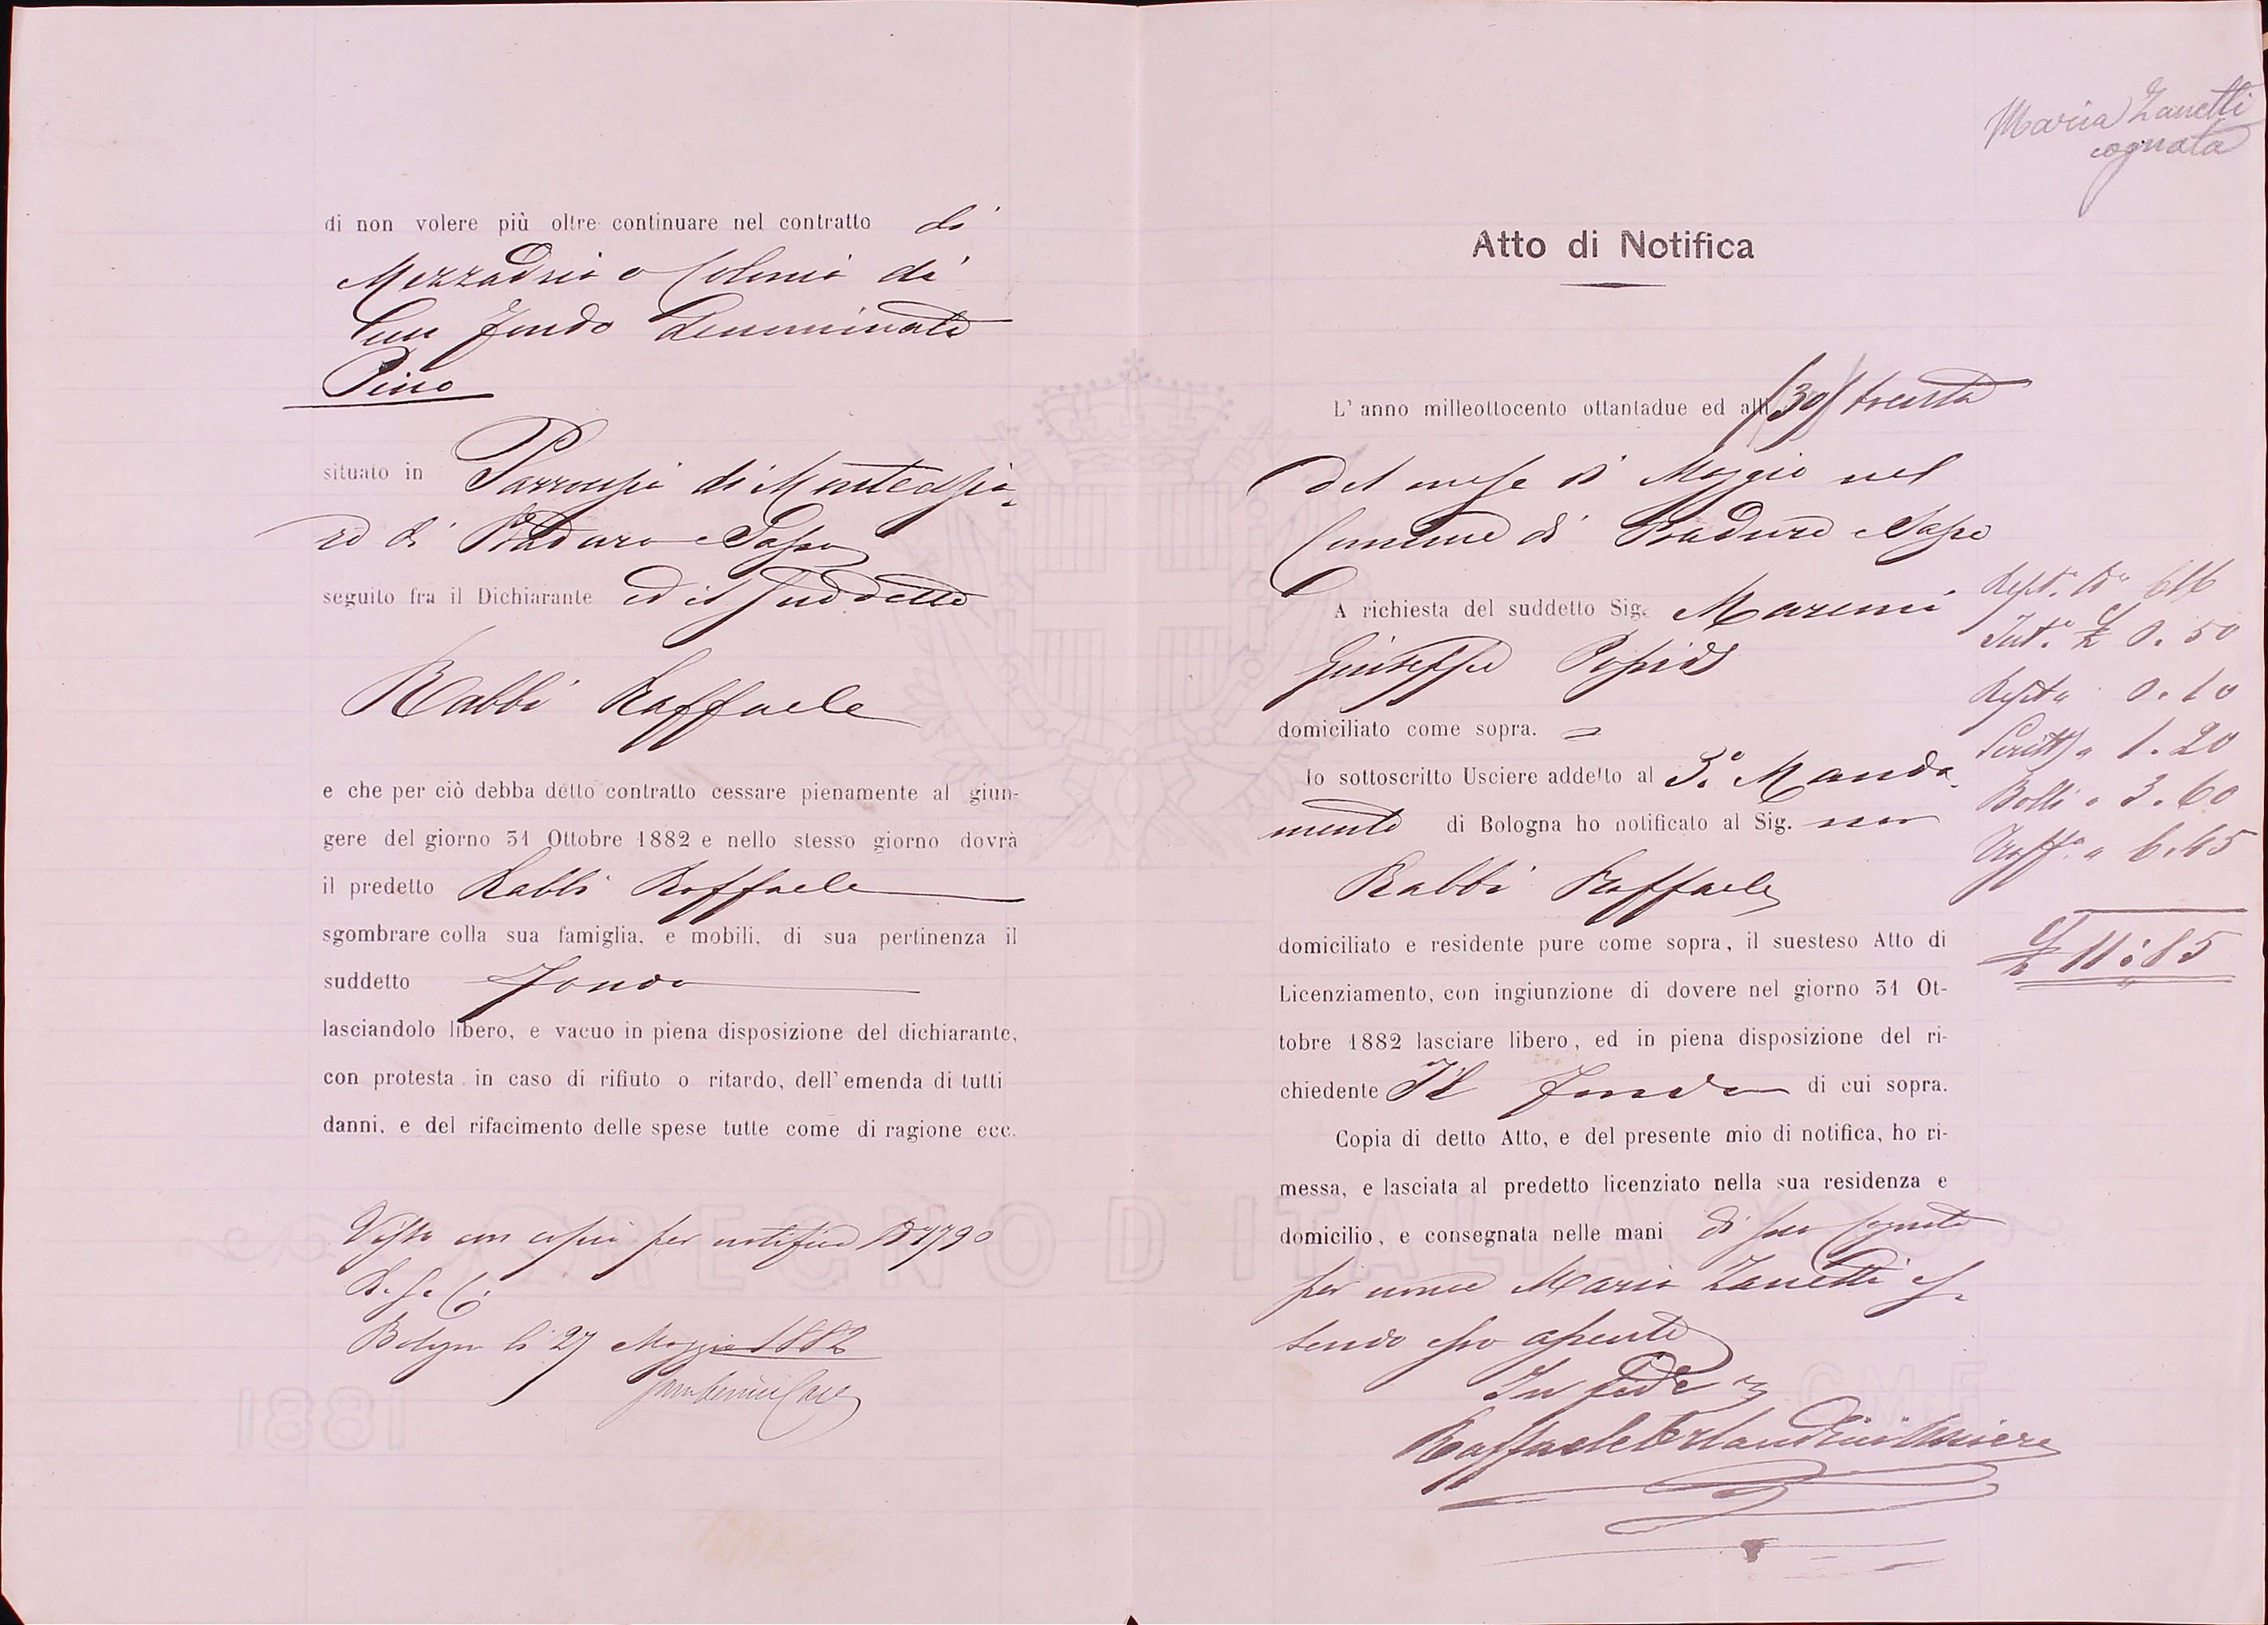 di non volere più oltre continuare nel contratto di
Mezzadria o Colonia di
un fondo denominato
Pino
situato in Parrocchia di Monte
di Praduro e Sasso
seguito fra il Dichiarante ed il suddetto
Rabbi Raffaele
e che per ciò debba detto contratto cessare pienamente al giun-
gere del giorno 31 Ottobre 1882 e nello stesso giorno dovrà
il predetto Rabbi Raffaele
sgombrare colla sua famiglia, e mobili, di sua pertinenza il
suddetto fondo
lasciandolo libero, e vacuo in piena disposizione del dichiarante,
con protesta in caso di rifiuto o ritardo, dell'emenda di tutti
danni, e del rifacimento delle spese tutte come di ragione ecc.
Visto con copia per notifica
Bologna li 27 Maggio 1882
REGNO D'ITALIA
1881
Maria Zanetti
cognata
Atto di Notifica
L'anno milleottocento ottantadue ed alli (30) trenta
del mese di Maggio nel
Comune di Praduro e Sasso
A richiesta del suddetto Sig. Maremi
Giuseppe
domiciliato come sopra. =
Io sottoscritto Usciere addetto al 3.° Manda-
mento di Bologna ho notificato al Sig.
Rabbi Raffaele
domiciliato e residente pure come sopra, il suesteso Atto di
Licenziamento, con ingiunzione di dovere nel giorno 31 Ot-
tobre 1882 lasciare libero, ed in piena disposizione del ri-
chiedente Il fondo di cui sopra.
Copia di detto Atto, e del presente mio di notifica, ho ri-
messa, e lasciata al predetto licenziato nella sua residenza e
domicilio, e consegnata nelle mani di sua cognata
per nome Maria Zanetti es-
sendo esso assente
In fede
Raffaele Erlandini Usciere
0.50
0.10
1.20
Bolli " 3.60
6.45
£ 11:85